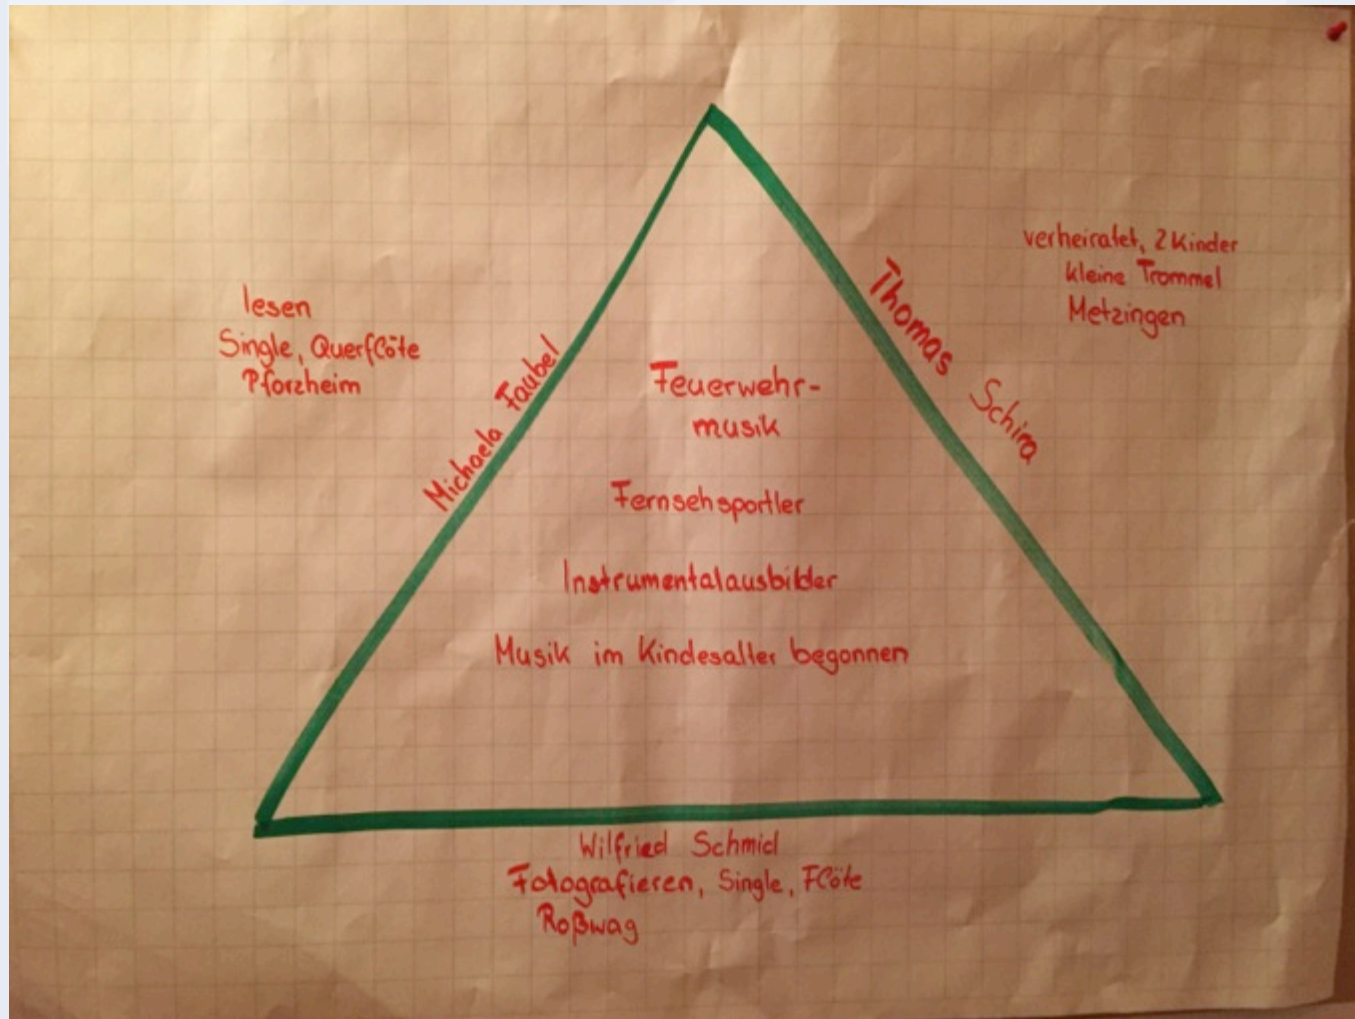 lesen
Single, Querflöte
Pforzheim
Michaela Faubel
verheiratet, 2 Kinder
kleine Trommel
Metzingen
Thomas Schira
Feuerwehr-
musik
Fernsehsportler
Instrumentalausbilder
Musik im Kindesalter begonnen
Wilfried Schmid
Fotografieren, Single, Flöte
Roßwag